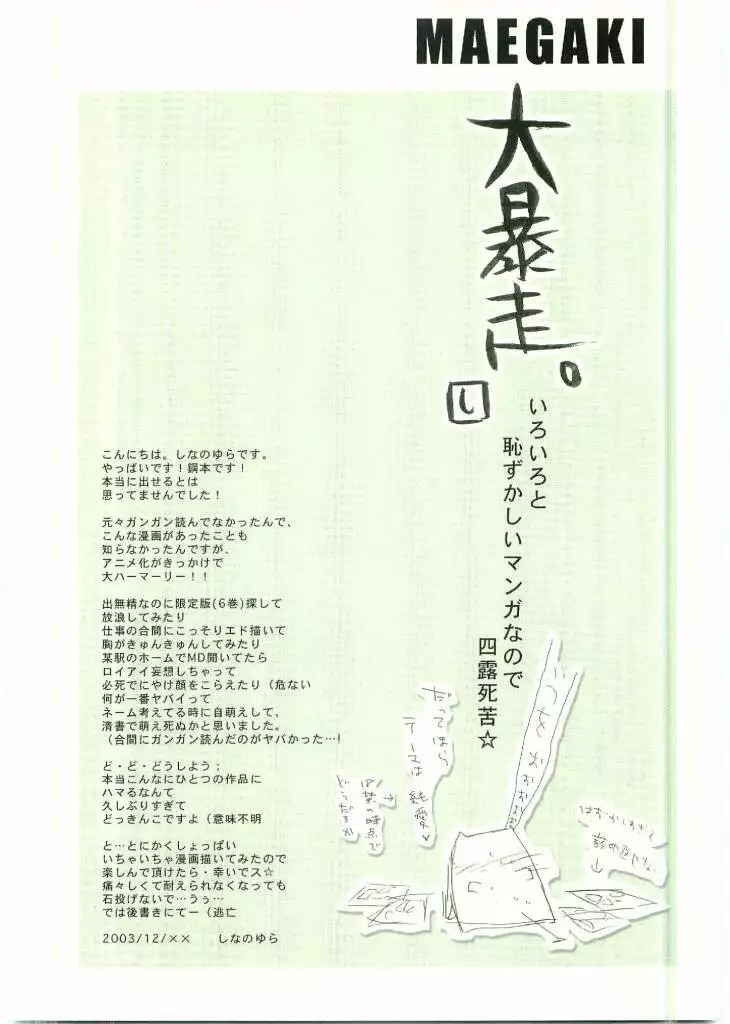 MAEGAKI
大暴走。
し
いろいろと
恥ずかしいマンガなので
四露死苦☆
こんにちは。しなのゆらです。
やっばいです！鋼本です！
本当に出せるとは
思ってませんでした！
元々ガンガン読んでなかったんで、
こんな漫画があったことも
知らなかったんですが、
アニメ化がきっかけで
大ハーマーリー！！
出無精なのに限定版(6巻)探して
放浪してみたり
仕事の合間にこっそりエド描いて
胸がきゅんきゅんしてみたり
某駅のホームでMD聞いてたら
ロイアイ妄想しちゃって
必死でにやけ顔をこらえたり（危ない
何が一番ヤバイって
ネーム考えてる時に自萌えして、
清書で萌え死ぬかと思いました。
（合間にガンガン読んだのがヤバかった…!
ど・ど・どうしよう；
本当こんなにひとつの作品に
ハマるなんて
久しぶりすぎて
どっきんこですよ（意味不明
と…とにかくしょっぱい
いちゃいちゃ漫画描いてみたので
楽しんで頂けたら・幸いでス☆
痛々しくて耐えられなくなっても
石投げないで…うぅ…
では後書きにてー（逃亡
2003/12/×× しなのゆら
だってほら
テーマは
純愛
→
18禁の時点で
どうだろか
はずかしすぎて
読み返せない
↓